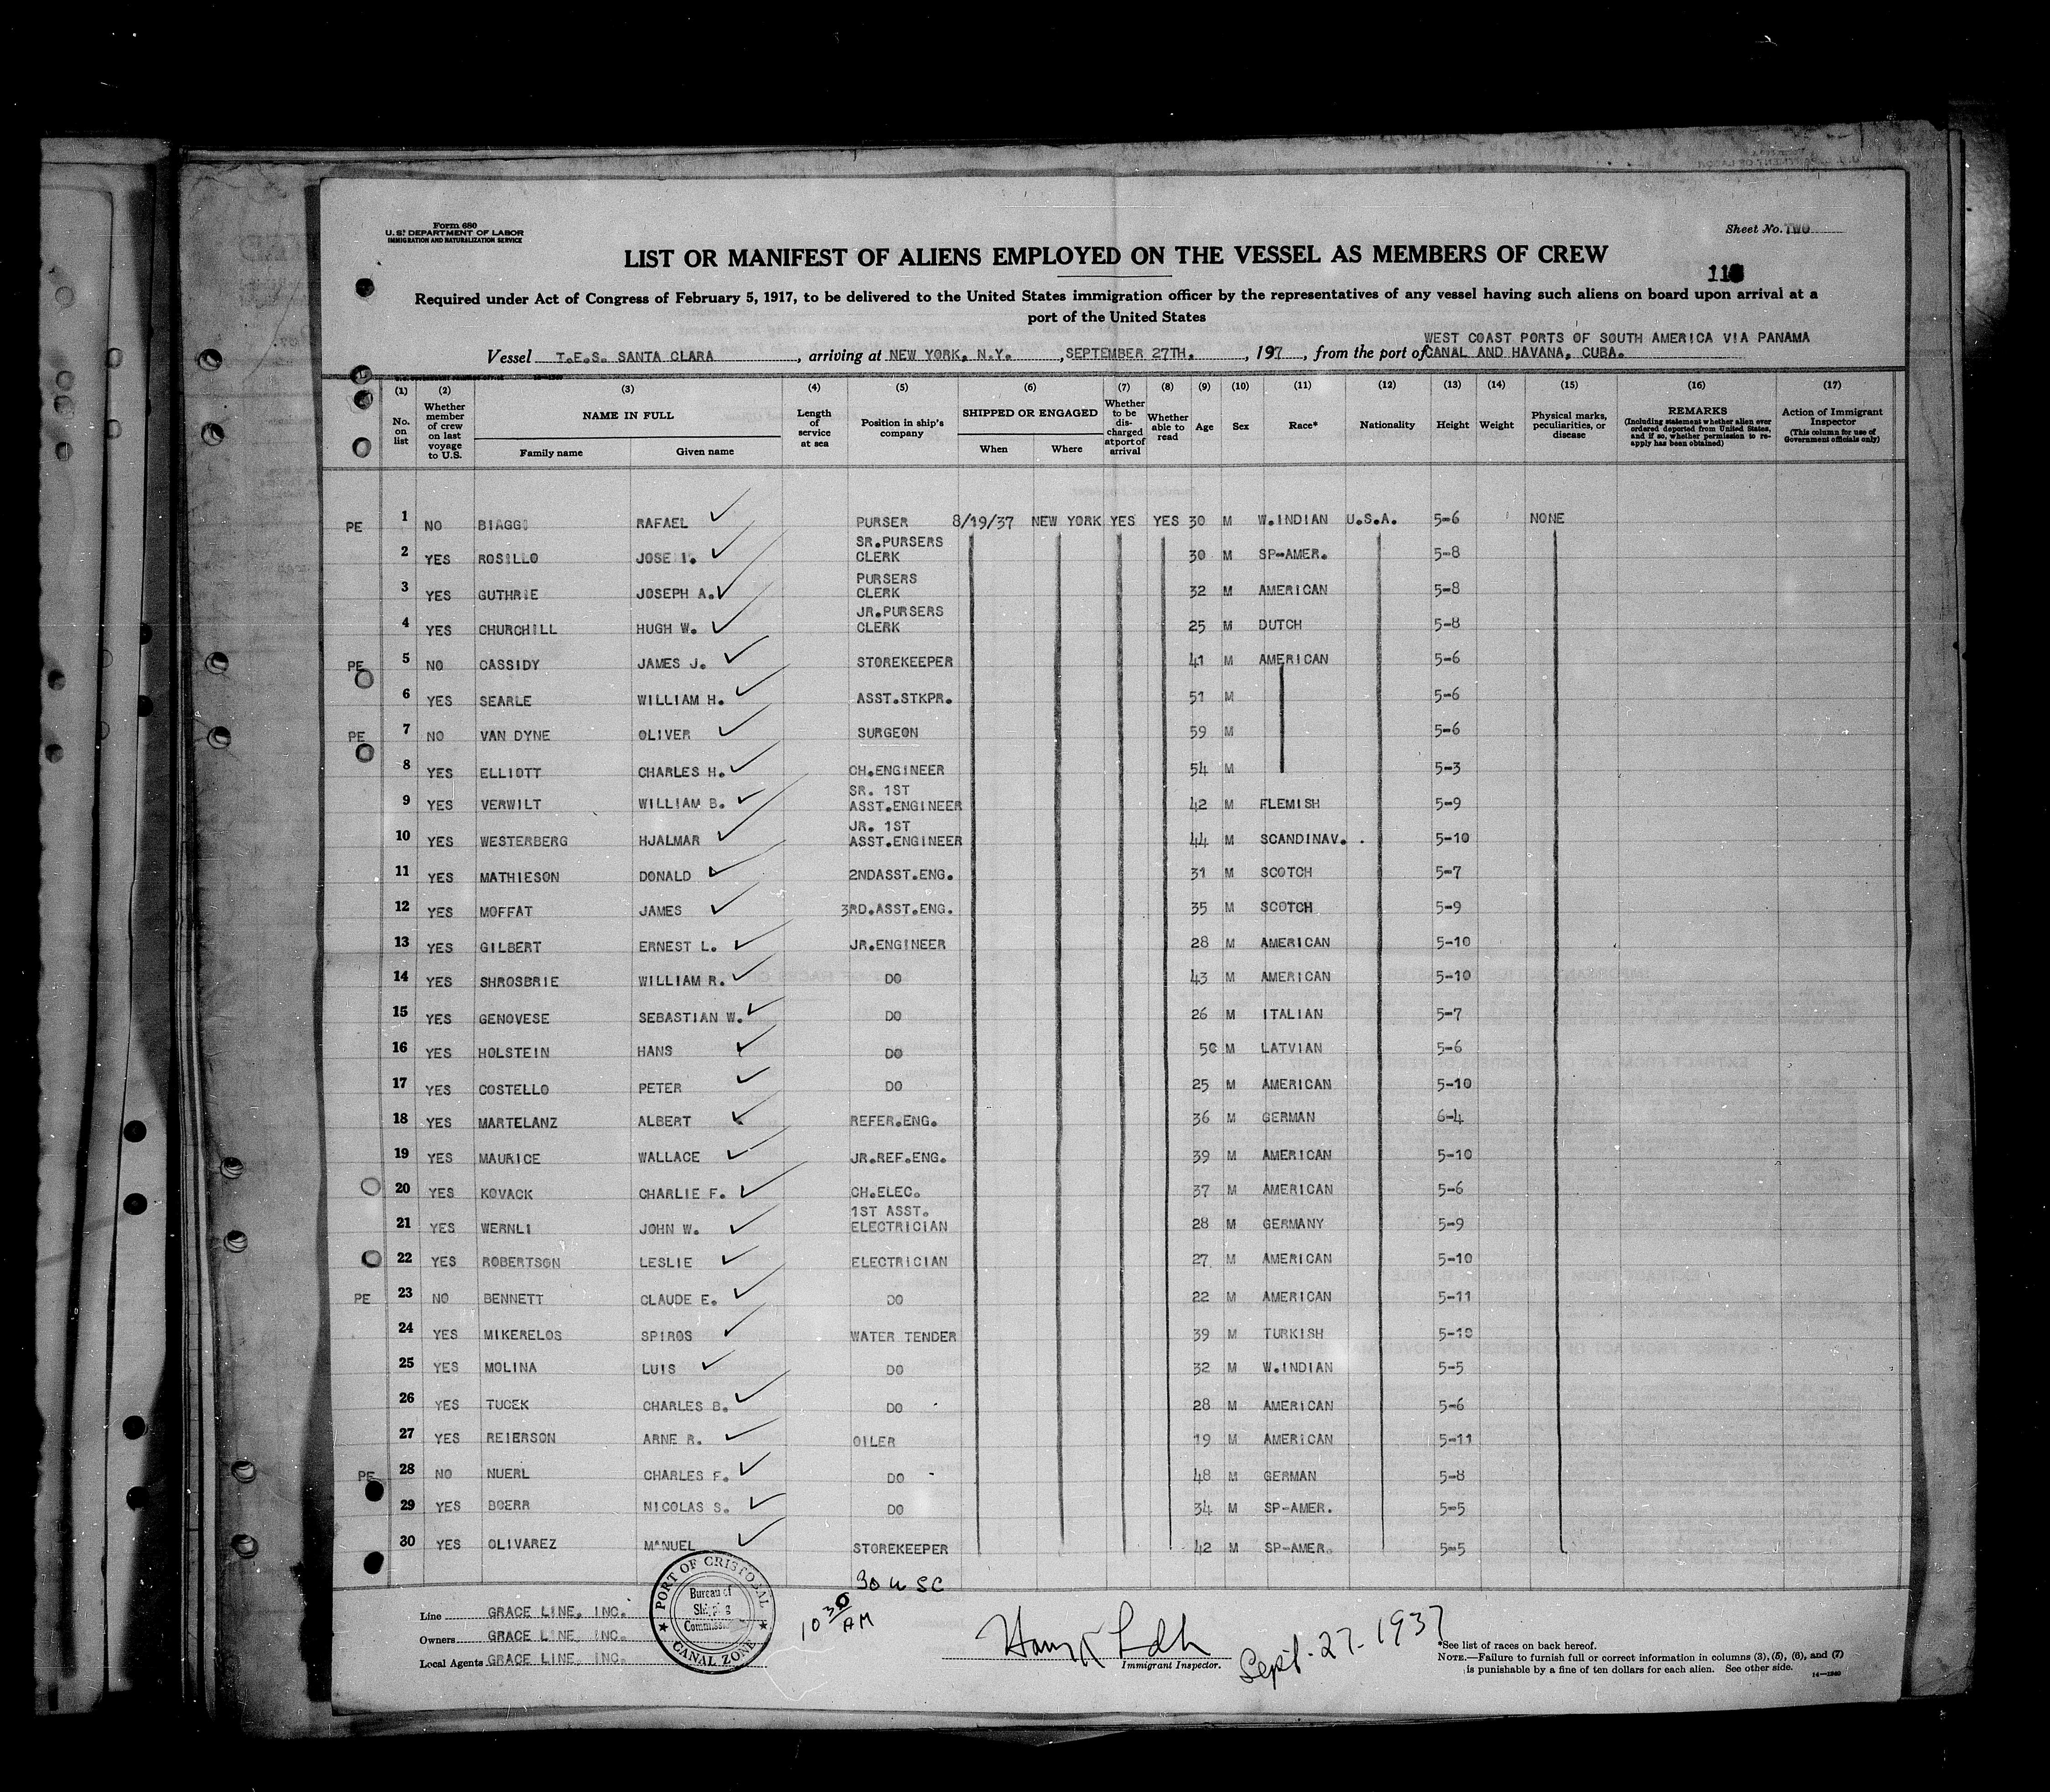 Form 680
U. S. DEPARTMENT OF LABOR
IMMIGRATION AND NATURALIZATION SERVICE
Sheet No. TWO
LIST OR MANIFEST OF ALIENS EMPLOYED ON THE VESSEL AS MEMBERS OF CREW
Required under Act of Congress of February 5, 1917, to be delivered to the United States immigration officer by the representatives of any vessel having such aliens on board upon arrival at a
port of the United States
WEST COAST PORTS OF SOUTH AMERICA VIA PANAMA
Vessel T.E.S. SANTA CLARA, arriving at NEW YORK, N.Y., SEPTEMBER 27TH., 197, from the port of CANAL AND HAVANA, CUBA.
(1) (2) (3) (4) (5) (6) (7) (8) (9) (10) (11) (12) (13) (14) (15) (16) (17)
No. on list
Whether member of crew on last voyage to U.S.
NAME IN FULL
Family name Given name
Length of service at sea
Position in ship's company
SHIPPED OR ENGAGED
When Where
Whether to be discharged at port of arrival
Whether able to read
Age Sex Race* Nationality Height Weight
Physical marks, peculiarities, or disease
REMARKS
(Including statement whether alien ever ordered deported from United States, and if so, whether permission to reapply has been obtained)
Action of Immigrant Inspector
(This column for use of Government officials only)
PE 1 NO BIAGGI RAFAEL PURSER 8/19/37 NEW YORK YES YES 30 M W.INDIAN U.S.A. 5-6 NONE
2 YES ROSILLO JOSE I. SR.PURSERS CLERK 30 M SP-AMER. 5-8
3 YES GUTHRIE JOSEPH A. PURSERS CLERK 32 M AMERICAN 5-8
4 YES CHURCHILL HUGH W. JR.PURSERS CLERK 25 M DUTCH 5-8
PE 5 NO CASSIDY JAMES J. STOREKEEPER 41 M AMERICAN 5-6
6 YES SEARLE WILLIAM H. ASST.STKPR. 51 M 5-6
PE 7 NO VAN DYNE OLIVER SURGEON 59 M 5-6
8 YES ELLIOTT CHARLES H. CH.ENGINEER 54 M 5-3
9 YES VERWILT WILLIAM B. SR. 1ST ASST.ENGINEER 42 M FLEMISH 5-9
10 YES WESTERBERG HJALMAR JR. 1ST ASST.ENGINEER 44 M SCANDINAV. 5-10
11 YES MATHIESON DONALD 2NDASST.ENG. 31 M SCOTCH 5-7
12 YES MOFFAT JAMES 3RD.ASST.ENG. 35 M SCOTCH 5-9
13 YES GILBERT ERNEST L. JR.ENGINEER 28 M AMERICAN 5-10
14 YES SHROSBRIE WILLIAM R. DO 43 M AMERICAN 5-10
15 YES GENOVESE SEBASTIAN W. DO 26 M ITALIAN 5-7
16 YES HOLSTEIN HANS DO 50 M LATVIAN 5-6
17 YES COSTELLO PETER DO 25 M AMERICAN 5-10
18 YES MARTELANZ ALBERT REFER.ENG. 36 M GERMAN 6-4
19 YES MAURICE WALLACE JR.REF.ENG. 39 M AMERICAN 5-10
20 YES KOVACK CHARLIE F. CH.ELEC. 37 M AMERICAN 5-6
21 YES WERNLI JOHN W. 1ST ASST. ELECTRICIAN 28 M GERMANY 5-9
22 YES ROBERTSON LESLIE ELECTRICIAN 27 M AMERICAN 5-10
PE 23 NO BENNETT CLAUDE E. DO 22 M AMERICAN 5-11
24 YES MIKERELOS SPIROS WATER TENDER 39 M TURKISH 5-10
25 YES MOLINA LUIS DO 32 M W.INDIAN 5-5
26 YES TUCEK CHARLES B. DO 28 M AMERICAN 5-6
27 YES REIERSON ARNE R. OILER 19 M AMERICAN 5-11
PE 28 NO NUERL CHARLES F. DO 48 M GERMAN 5-8
29 YES BOERR NICOLAS S. DO 34 M SP-AMER. 5-5
30 YES OLIVAREZ MANUEL STOREKEEPER 42 M SP-AMER. 5-5
30 U SC
10 30 AM
Line GRACE LINE, INC.
Owners GRACE LINE, INC.
Local Agents GRACE LINE, INC.
PORT OF CRISTOBAL
Bureau of
Shipping
CANAL ZONE
Immigrant Inspector.
Sept. 27-1937
*See list of races on back hereof.
NOTE.—Failure to furnish full or correct information in columns (3), (5), (6), and (7)
is punishable by a fine of ten dollars for each alien. See other side.